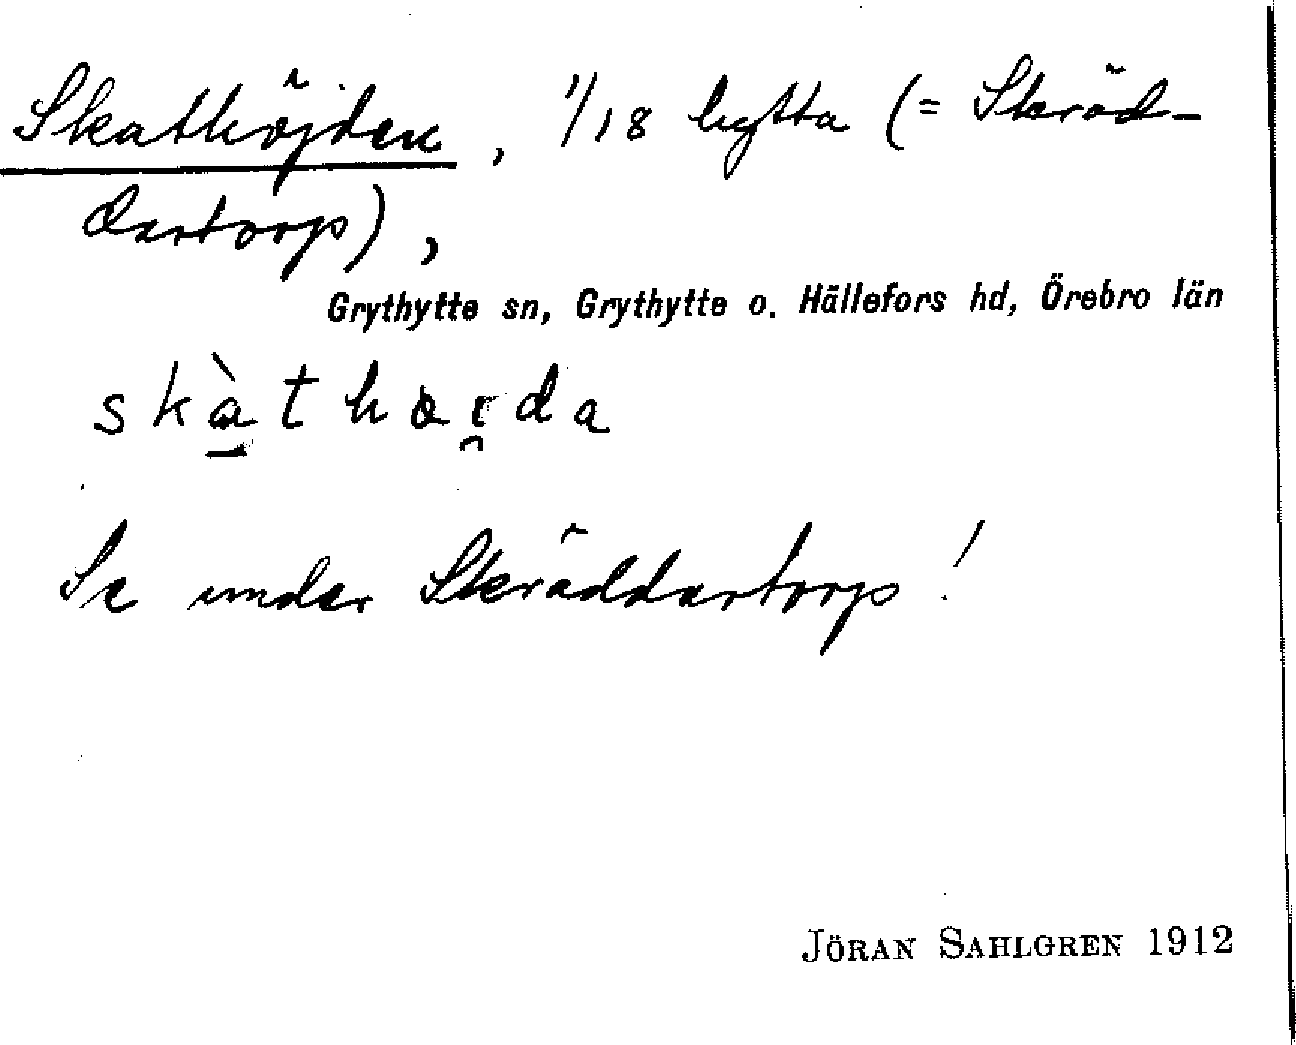 Skathöjden, 1/18 hytta (= Skräd-
dartorp),
Grythytte sn, Grythytte o. Hällefors hd, Örebro län
Se under Skräddartorp!
JÖRAN SAHLGREN 1912